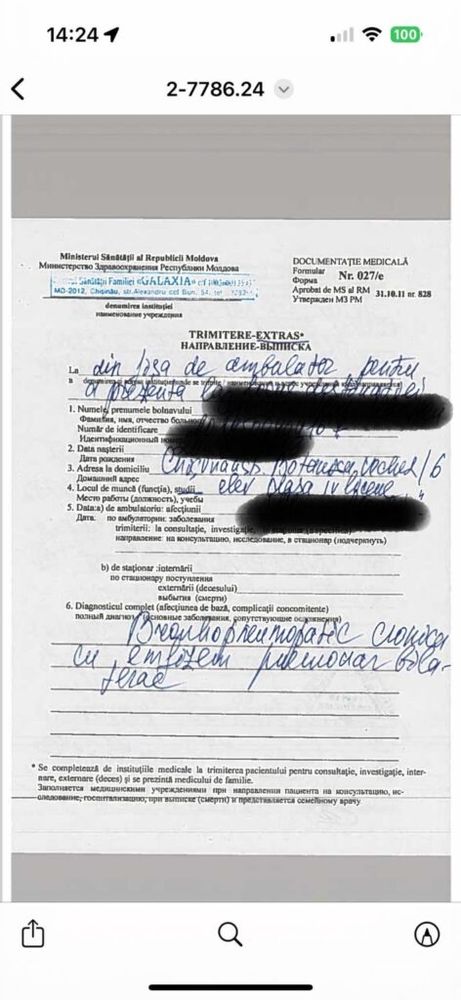 14:24
100
2-7786.24
Ministerul Sănătăţii al Republicii Moldova
Министерство Здравоохранения Республики Молдова
Sănătăţii Familiei «GALAXIA»
MD-2012, Chişinău, str.Alexandru cel Bun, 54, tel.
denumirea instituţiei
наименование учреждения
DOCUMENTAŢIE MEDICALĂ
Formular
Форма Nr. 027/e
Aprobat de MS al RM
Утвержден МЗ РМ 31.10.11 nr. 828
TRIMITERE-EXTRAS*
НАПРАВЛЕНИЕ-ВЫПИСКА
La din fişa de ambulator pentru
в
a prezenta
1. Numele, prenumele bolnavului
Фамилия, имя, отчество больного
Număr de identificare
Идентификационный номер
2. Data naşterii
Дата рождения
3. Adresa la domiciliu
Домашний адрес
4. Locul de muncă (funcţia), studii elev clasa IV
Место работы (должность), учебы
5. Data:a) de ambulatoriu: afecţiunii
Дата. по амбулатории: заболевания
trimiterii: la consultaţie, investigaţie,
направление: на консультацию, исследование, в стационар (подчеркнуть)
b) de staţionar :internării
по стационару поступления
externării (decesului)
выбытия (смерти)
6. Diagnosticul complet (afecţiunea de bază, complicaţii concomitente)
полный диагноз (основные заболевания, сопутствующие осложнения)
Bronhopneumopatie cronica
cu emfizem pulmonar bila-
teral
* Se completează de instituţiile medicale la trimiterea pacientului pentru consultaţie, investigaţie, inter-
nare, externare (deces) şi se prezintă medicului de familie.
Заполняется медицинскими учреждениями при направлении пациента на консультацию, ис-
следование, госпитализацию, при выписке (смерти) и представляется семейному врачу.